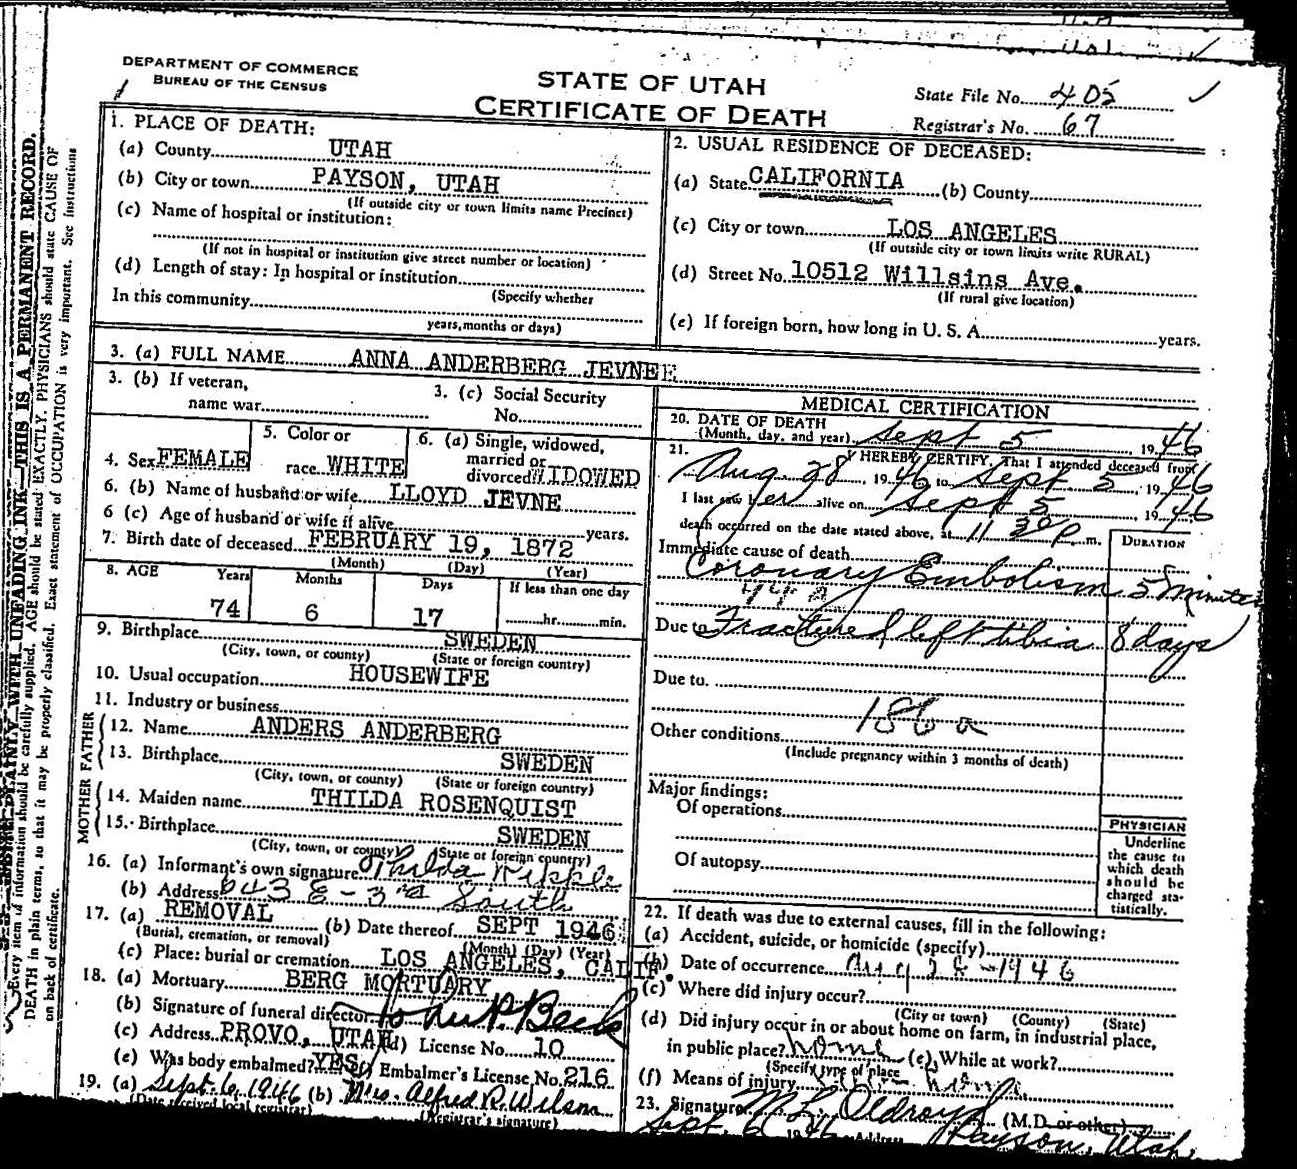 DEPARTMENT OF COMMERCE
BUREAU OF THE CENSUS
STATE OF UTAH
CERTIFICATE OF DEATH
State File No. 405
Registrar's No. 67
1. PLACE OF DEATH:
(a) County UTAH
(b) City or town PAYSON, UTAH
(If outside city or town limits name Precinct)
(c) Name of hospital or institution:
(If not in hospital or institution give street number or location)
(d) Length of stay: In hospital or institution
(Specify whether
In this community
years, months or days)
2. USUAL RESIDENCE OF DECEASED:
(a) State CALIFORNIA (b) County
(c) City or town LOS ANGELES
(If outside city or town limits write RURAL)
(d) Street No. 10512 Willsins Ave.
(If rural give location)
(e) If foreign born, how long in U. S. A. years.
3. (a) FULL NAME ANNA ANDERBERG JEVNEE
3. (b) If veteran, name war
3. (c) Social Security No.
4. Sex FEMALE
5. Color or race WHITE
6. (a) Single, widowed, married or divorced WIDOWED
6. (b) Name of husband or wife LLOYD JEVNE
6 (c) Age of husband or wife if alive years.
7. Birth date of deceased FEBRUARY 19, 1872
(Month) (Day) (Year)
8. AGE Years Months Days If less than one day
74 6 17 hr. min.
9. Birthplace SWEDEN
(City, town, or county) (State or foreign country)
10. Usual occupation HOUSEWIFE
11. Industry or business
FATHER
12. Name ANDERS ANDERBERG
13. Birthplace SWEDEN
(City, town, or county) (State or foreign country)
MOTHER
14. Maiden name THILDA ROSENQUIST
15. Birthplace SWEDEN
(City, town, or county) (State or foreign country)
16. (a) Informant's own signature Thilda
(b) Address 643 E - 3rd South
17. (a) REMOVAL (b) Date thereof SEPT 1946
(Burial, cremation, or removal) (Month) (Day) (Year)
(c) Place: burial or cremation LOS ANGELES, CALIF.
18. (a) Mortuary BERG MORTUARY
(b) Signature of funeral director John P. Beck
(c) Address PROVO, UTAH (d) License No. 10
(e) Was body embalmed? YES (f) Embalmer's License No. 216
19. (a) Sept. 6, 1946 (b) Mrs. Alfred R. Wilson
(Date received local registrar) (Registrar's signature)
MEDICAL CERTIFICATION
20. DATE OF DEATH
(Month, day, and year) Sept 5, 1946
21. I HEREBY CERTIFY, That I attended deceased from
Aug 28, 1946 to Sept 5, 1946
I last saw her alive on Sept 5 1946
death occurred on the date stated above, at 11 30 p m.
DURATION
Immediate cause of death
Coronary Embolism 5 Minutes
Due to Fractured left tibia 8 days
Due to
186 a
Other conditions
(Include pregnancy within 3 months of death)
Major findings:
Of operations
Of autopsy
PHYSICIAN
Underline
the cause to
which death
should be
charged sta-
tistically.
22. If death was due to external causes, fill in the following:
(a) Accident, suicide, or homicide (specify)
(b) Date of occurrence Aug 28 - 1946
(c) Where did injury occur?
(City or town) (County) (State)
(d) Did injury occur in or about home on farm, in industrial place,
in public place? home (e) While at work?
(Specify type of place
(f) Means of injury
23. Signature M L Oldroyd (M.D. or other)
Sept 6 1946 Address Payson, Utah.
Every item of information should be carefully supplied. AGE should be stated EXACTLY. PHYSICIANS should state CAUSE OF
DEATH in plain terms, so that it may be properly classified. Exact statement of OCCUPATION is very important. See instructions
on back of certificate.
WRITE PLAINLY WITH UNFADING INK—THIS IS A PERMANENT RECORD.